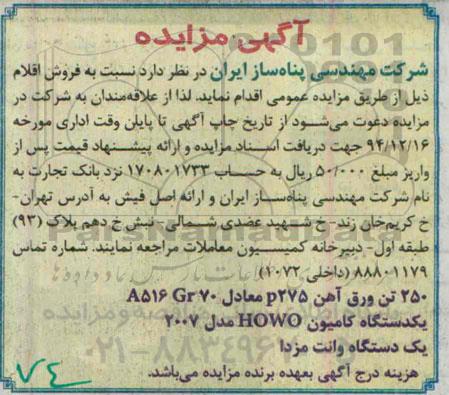 آگهی مزایده
شرکت مهندسی پناه‌ساز ایران در نظر دارد نسبت به فروش اقلام
ذیل از طریق مزایده عمومی اقدام نماید. لذا از علاقه‌مندان به شرکت در
مزایده دعوت می‌شود از تاریخ چاپ آگهی تا پایان وقت اداری مورخه
۹۴/۱۲/۱۶ جهت دریافت اسناد مزایده و ارائه پیشنهاد قیمت پس از
واریز مبلغ ۵۰/۰۰۰ ریال به حساب ۱۷۰۸۰۱۷۳۳ نزد بانک تجارت به
نام شرکت مهندسی پناه‌ساز ایران و ارائه اصل فیش به آدرس تهران-
خ کریم‌خان زند- خ شهید عضدی شمالی- نبش خ دهم پلاک (۹۳)
طبقه اول- دبیرخانه کمیسیون معاملات مراجعه نمایند. شماره تماس
۸۸۸۰۱۱۷۹ (داخلی ۲۰۷۲)
۲۵۰ تن ورق آهن p۲۷۵ معادل A۵۱۶ Gr ۷۰
یکدستگاه کامیون HOWO مدل ۲۰۰۷
یک دستگاه وانت مزدا
هزینه درج آگهی بعهده برنده مزایده می‌باشد.
۷۴
۰۲۱-۸۸۳۴۹۶